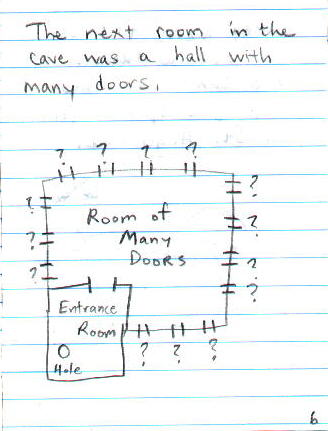 The next room in the
cave was a hall with
many doors.
? ? ? ?
?
?
?
?
?
?
?
Room of
Many
Doors
Entrance
Room
? ? ?
O
Hole
6